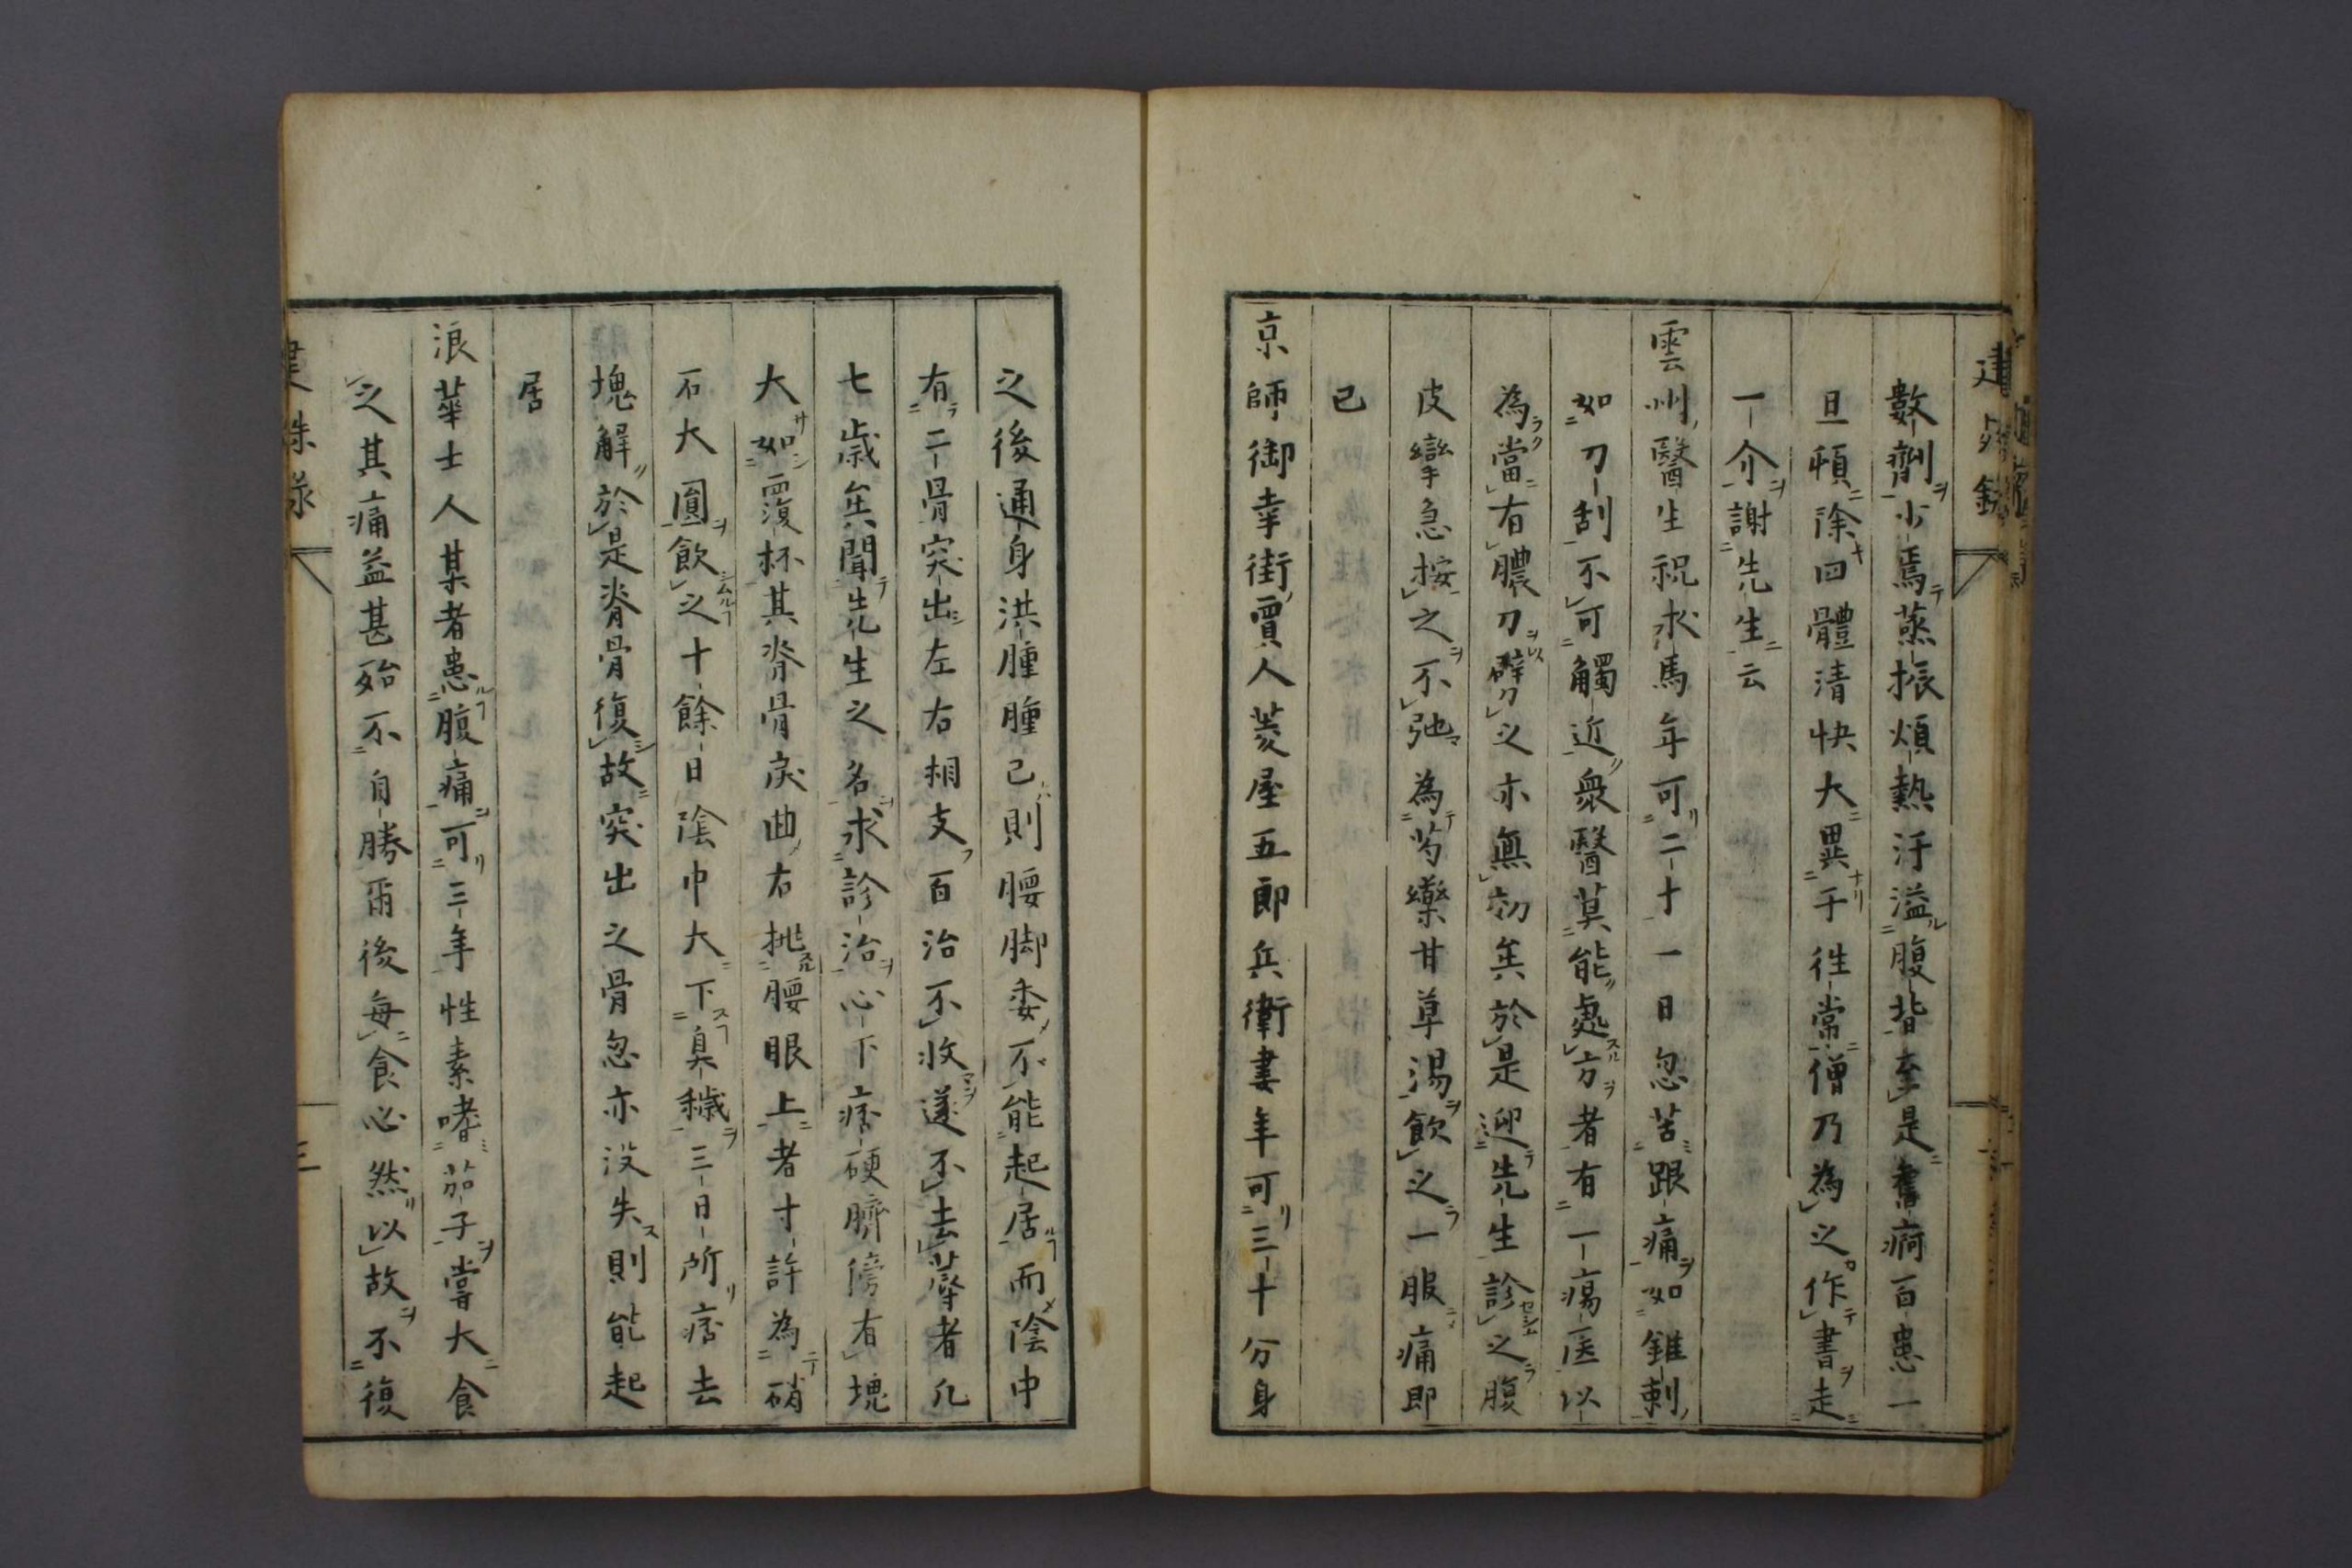 建殊錄
數劑少焉蒸振煩熱汗溢腹背至是舊痾百患一
旦頓除四體清快大異于徃常僧乃為之作書走
一介謝先生云
雲州醫生祝求馬年可二十一日忽苦跟痛如錐刺
如刀刮不可觸近衆醫莫能處方者有一瘍医以
為當有膿刀劈之亦無効矣於是迎先生診之腹
皮攣急按之不弛為芍藥甘草湯飲之一服痛即
已
京師御幸街賈人菱屋五郎兵衛妻年可三十分身
之後通身洪腫腫已則腰脚委不能起居而陰中
有二骨突出左右相支百治不收遂不去蓐者凡
七歳矣聞先生之名求診治心下痞硬臍傍有塊
大如覆杯其脊骨戾曲右挑腰眼上者寸許為硝
石大圓飲之十餘日陰中大下臭穢三日所痞去
塊解於是脊骨復故突出之骨忽亦没失則能起
居
浪華士人某者患腹痛可三年性素嗜茄子嘗大食
之其痛益甚殆不自勝爾後每食必然以故不復
建殊錄
三